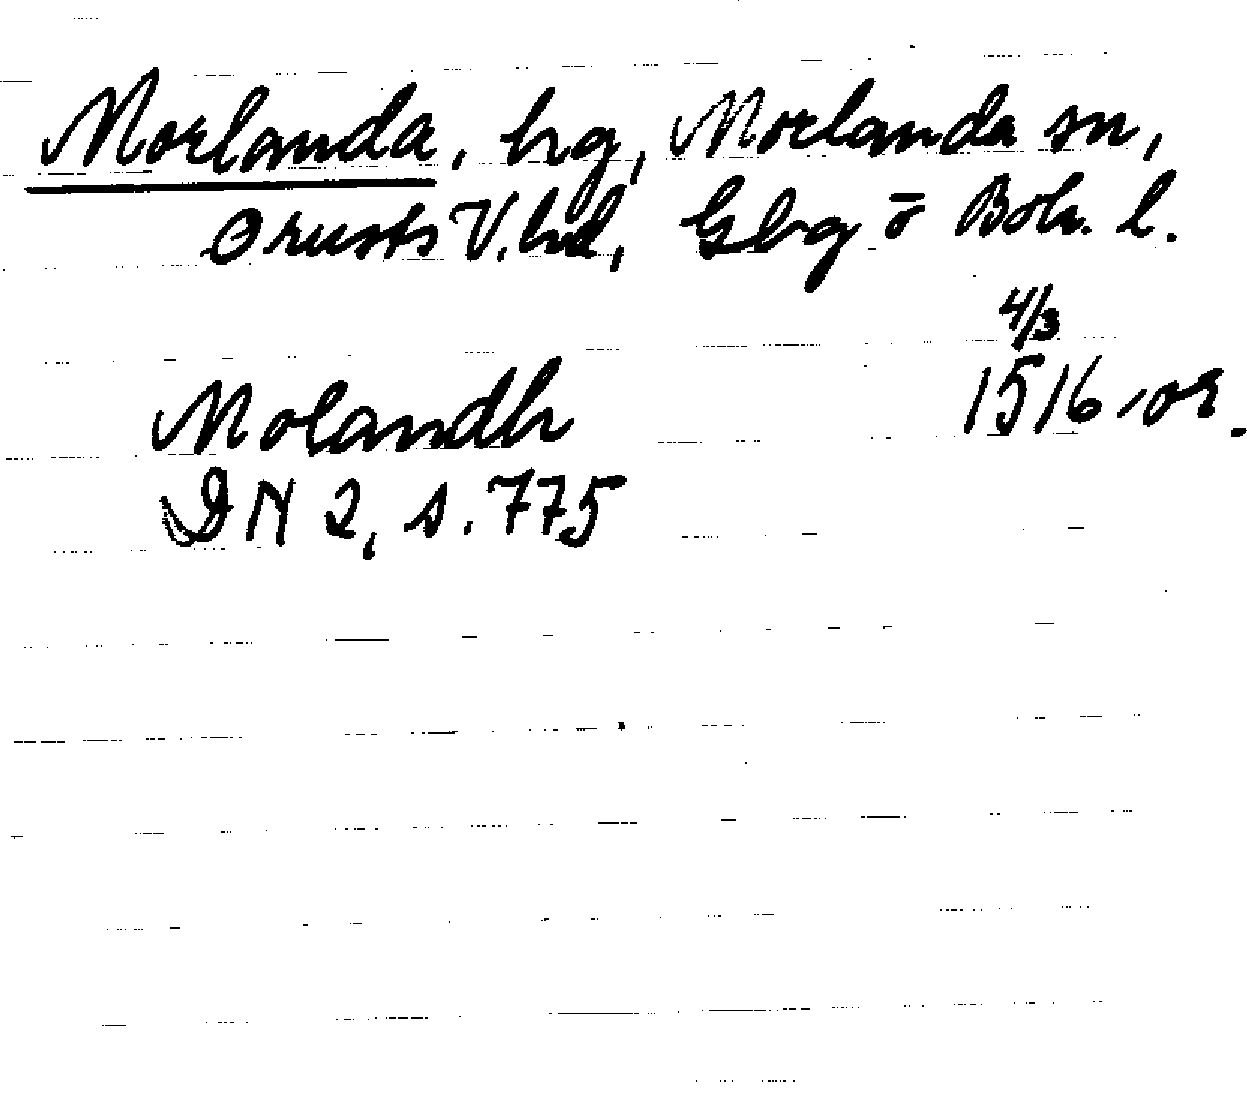 Morlanda, hg, Morlanda sn,
Orusts V. hd, Gbg o Boh. l.
4/3
Molandh 1516 or.
DN 2, s. 775